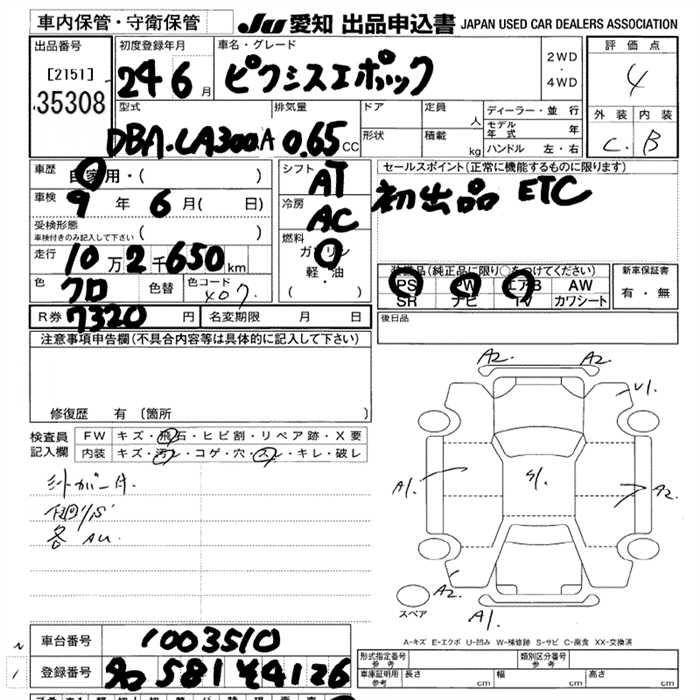 車内保管・守衛保管 JU 愛知 出品申込書 JAPAN USED CAR DEALERS ASSOCIATION
出品番号 [2151] 35308
初度登録年月 24 6月
車名・グレード ピクシスエポック
2WD・4WD
評価点 4
外装 C 内装 B
型式 DBA-LA300A
排気量 0.65 CC
ドア 形状
定員 人
積載 kg
ディーラー・並行
モデル年式 年
ハンドル 左・右
車歴 自家用・( )
車検 9年6月( 日)
受検形態
車検付きのみ記入して下さい ( )
走行 10万2千650km
色 クロ 色替 色コード X07
R券 7320円 名変期限 月 日
シフト AT
冷房 AC
燃料 ガソリン
軽・油
( )
セールスポイント(正常に機能するものに限ります)
初出品 ETC
装備品(純正品に限り○をつけてください)
PS PW エアB AW
SR ナビ TV カワシート
新車保証書
有・無
後日品
注意事項申告欄(不具合内容等は具体的に記入して下さい)
修復歴 有 〔箇所
検査員記入欄
FW キズ・飛石・ヒビ割・リペア跡・X要
内装 キズ・汚レ・コゲ・穴・スレ・キレ・破レ
シートカバー付
下廻りS
各AU
A2. A2.
U1.
A1. S1. A2.
A2. A1.
スペア
A-キズ E-エクボ U-凹み W-補修跡 S-サビ C-腐食 XX-交換済
車台番号 1003510
登録番号 581 4126
形式指定番号 参考
類別区分番号 参考
車庫証明用 参考 長さ cm 幅 cm 高さ cm